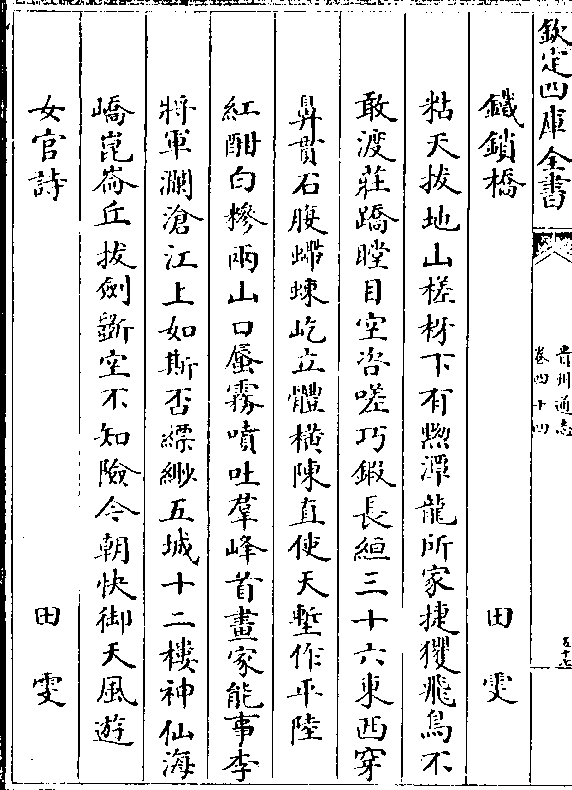 欽定四庫全書
貴州通志
卷四十四
五十七
鐵鎖橋 田雯
粘天拔地山槎枒下有㵝潭龍所家捷玃飛鳥不
敢渡莊蹻瞠目空咨嗟巧鍛長絙三十六東西穿
鼻貫石腹螮蝀屹立體橫陳直使天塹作平陸
紅酣白糝兩山口蜃霧噴吐羣峰首畫家能事李
將軍瀾滄江上如斯否縹緲五城十二樓神仙海
嶠崑崙丘拔劍斲空不知險今朝快御天風遊
女官詩 田雯